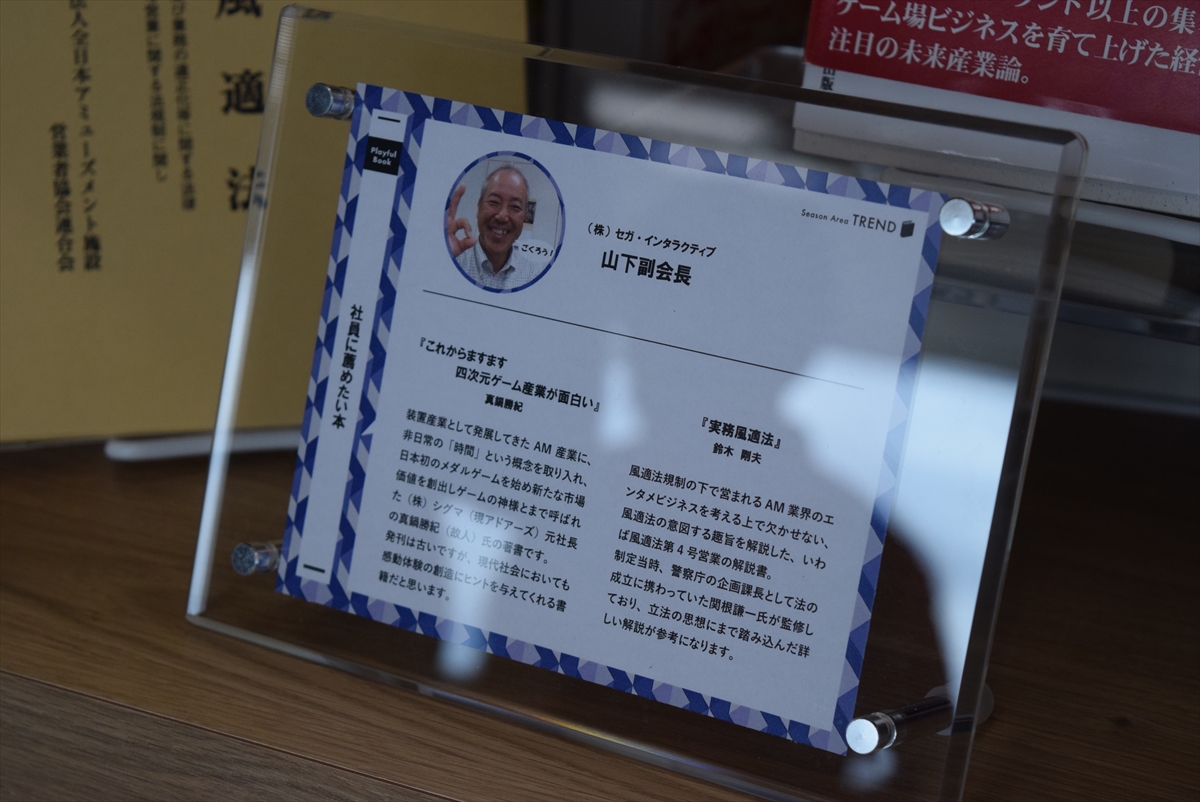 風適法
法人全日本アミューズメント施設
営業者協会連合会
ント以上の集
ゲーム場ビジネスを育て上げた経
注目の未来産業論。
出版
Playful
Book
社員に薦めたい本
ごくろう
Season Area TREND
(株)セガ・インタラクティブ
山下副会長
『これからますます
四次元ゲーム産業が面白い』
真鍋勝紀
装置産業として発展してきた AM 産業に、
非日常の「時間」という概念を取り入れ、
日本初のメダルゲームを始め新たな市場
価値を創出しゲームの神様とまで呼ばれ
た(株)シグマ(現アドアーズ)元社長
の真鍋勝紀(故人)氏の著書です。
発刊は古いですが、現代社会においても
感動体験の創造にヒントを与えてくれる書
籍だと思います。
『実務風適法』
鈴木 剛夫
風適法規制の下で営まれる AM 業界のエ
ンタメビジネスを考える上で欠かせない、
風適法の意図する趣旨を解説した、いわ
ば風適法第4号営業の解説書。
制定当時、警察庁の企画課長として法の
成立に携わっていた関根謙一氏が監修し
ており、立法の思想にまで踏み込んだ詳
しい解説が参考になります。